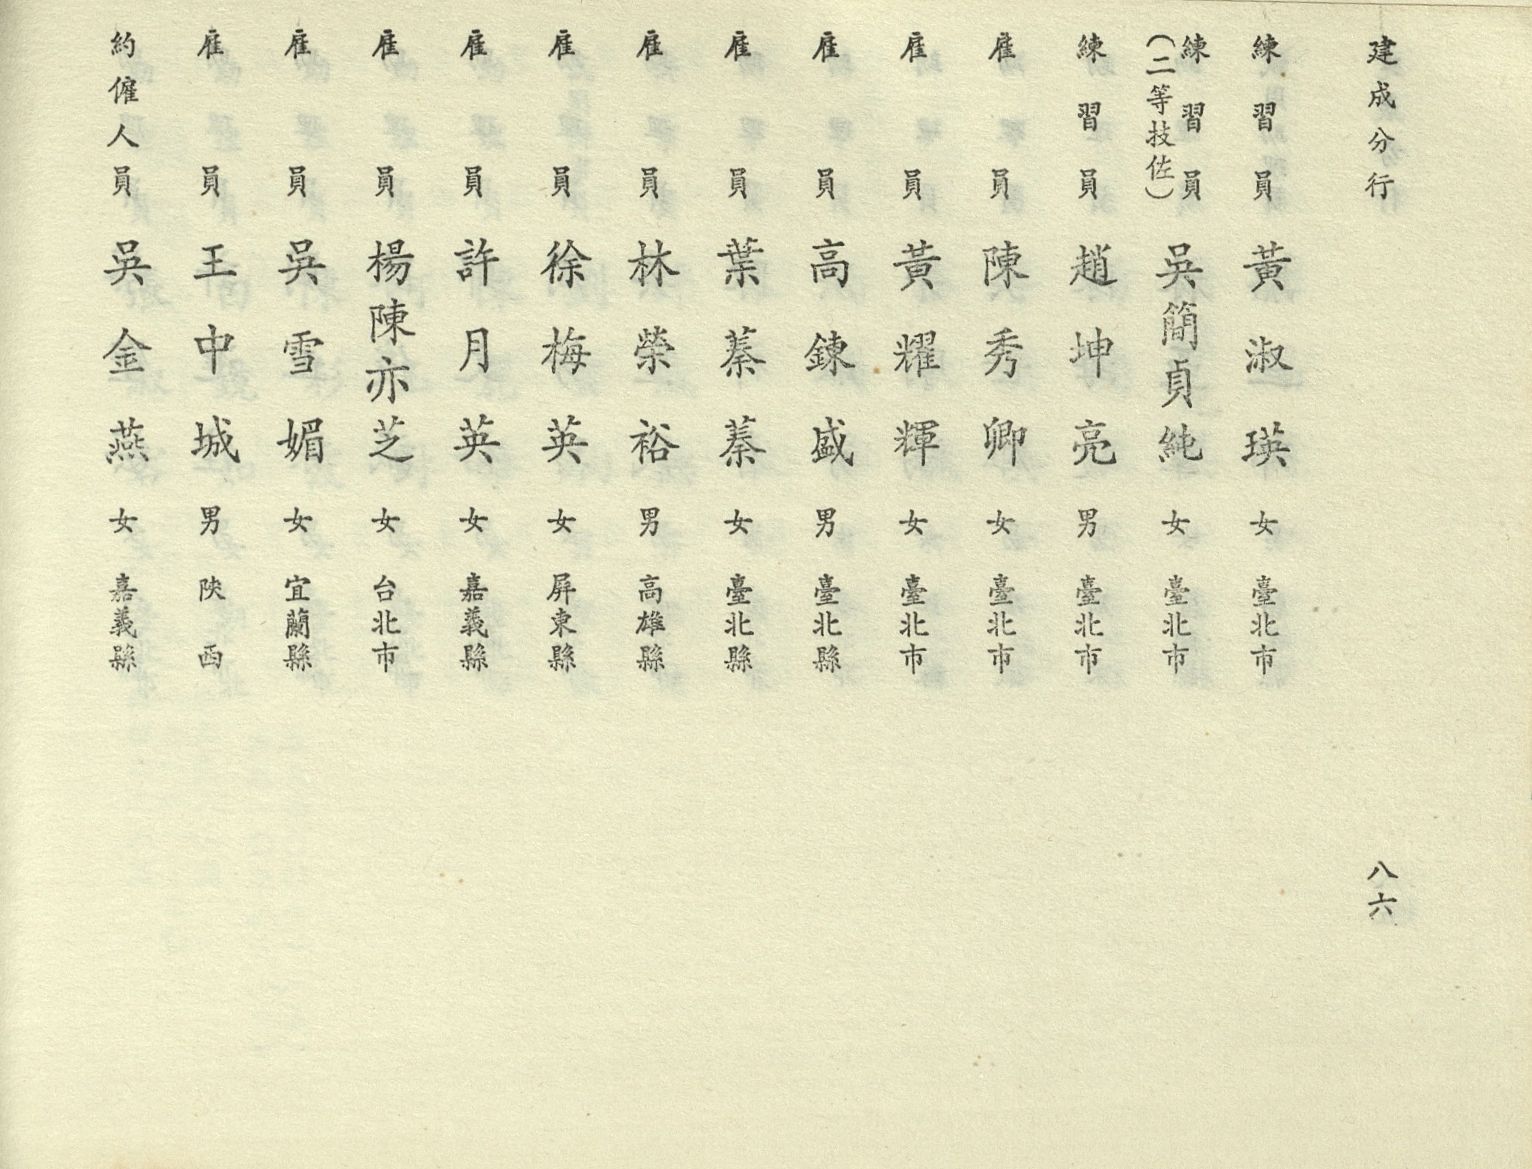 建成分行
八六
練習員 黃淑瑛 女 臺北市
練習員(二等技佐) 吳簡貞純 女 臺北市
練習員 趙坤亮 男 臺北市
雇員 陳秀卿 女 臺北市
雇員 黃耀輝 女 臺北市
雇員 高鍊盛 男 臺北縣
雇員 葉蓁蓁 女 臺北縣
雇員 林榮裕 男 高雄縣
雇員 徐梅英 女 屏東縣
雇員 許月英 女 嘉義縣
雇員 楊陳亦芝 女 台北市
雇員 吳雪媚 女 宜蘭縣
雇員 王中城 男 陝西
約僱人員 吳金燕 女 嘉義縣